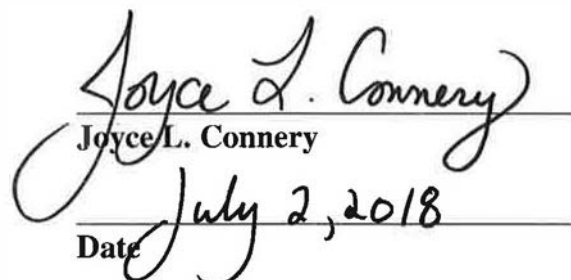 Joyce L. Connery
Joyce L. Connery
July 2, 2018
Date